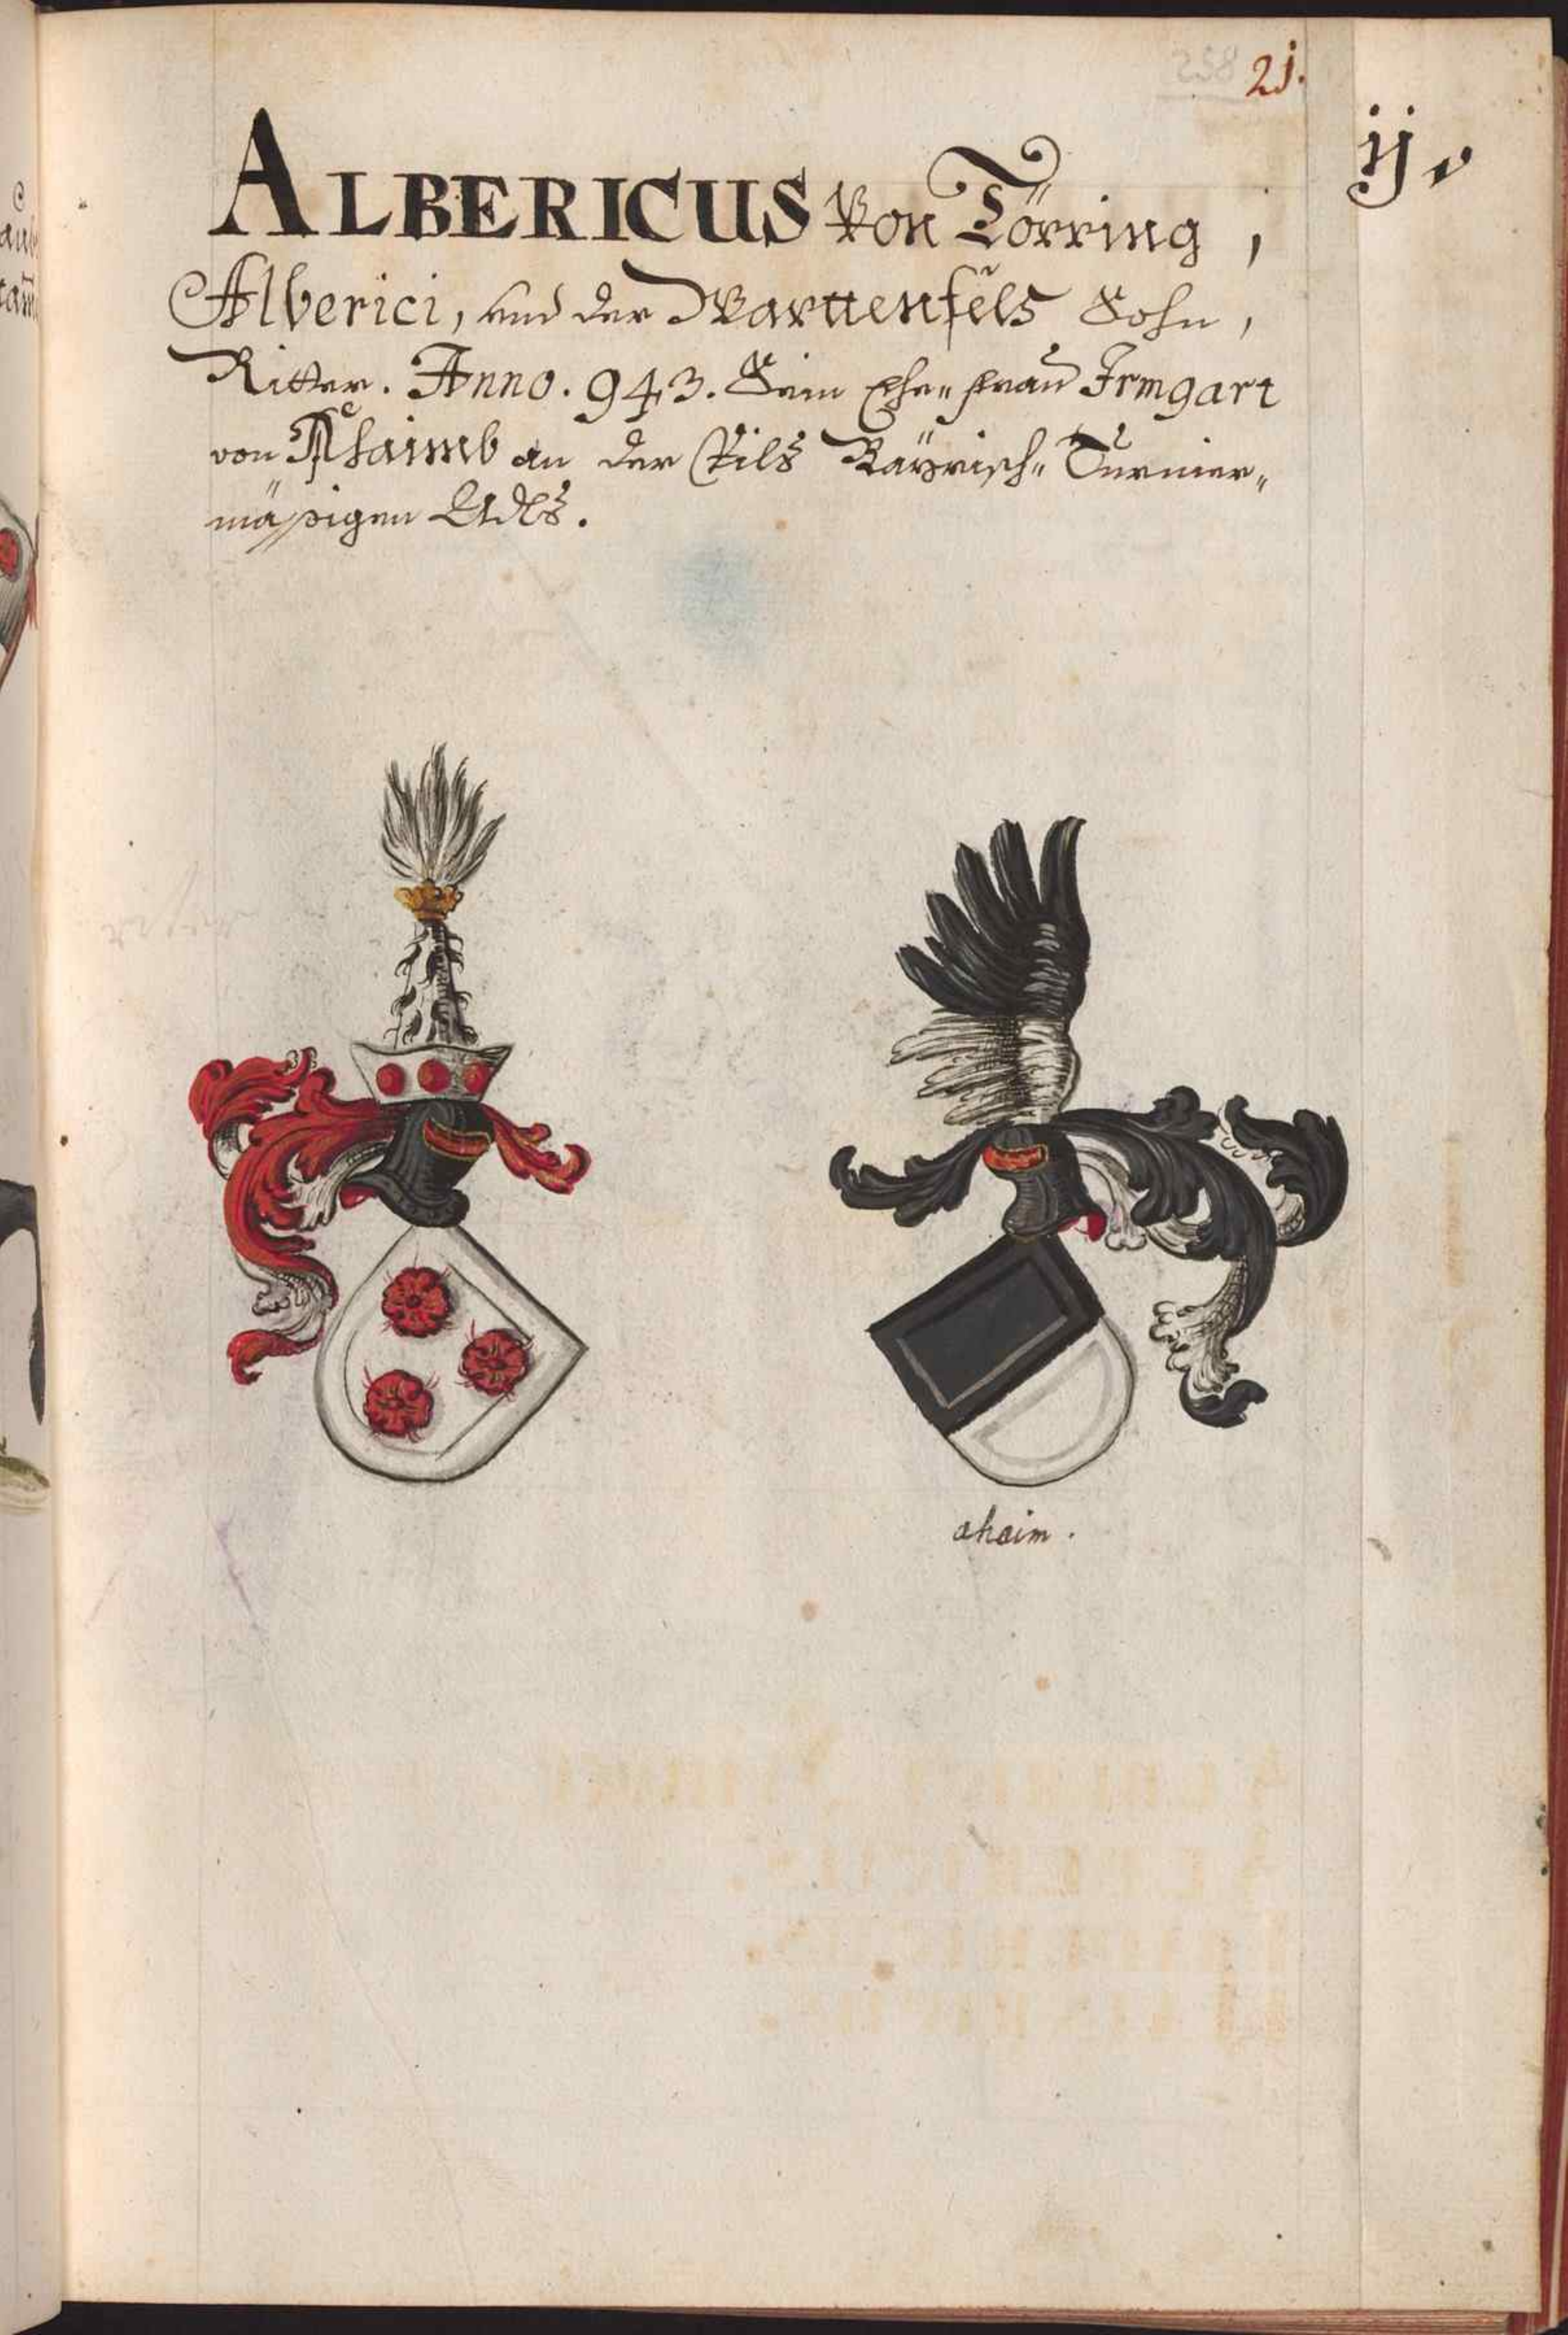 21.
ij.
ALBERICUS Von Törring,
Alberici, und der Warttenfels Sohn,
Ritter. Anno. 943. Sein Ehe„ frau Irmgart
von Ahaimb an der Vils Bayrisch„ Turnier„
mäßigen Adls.
ahaim.